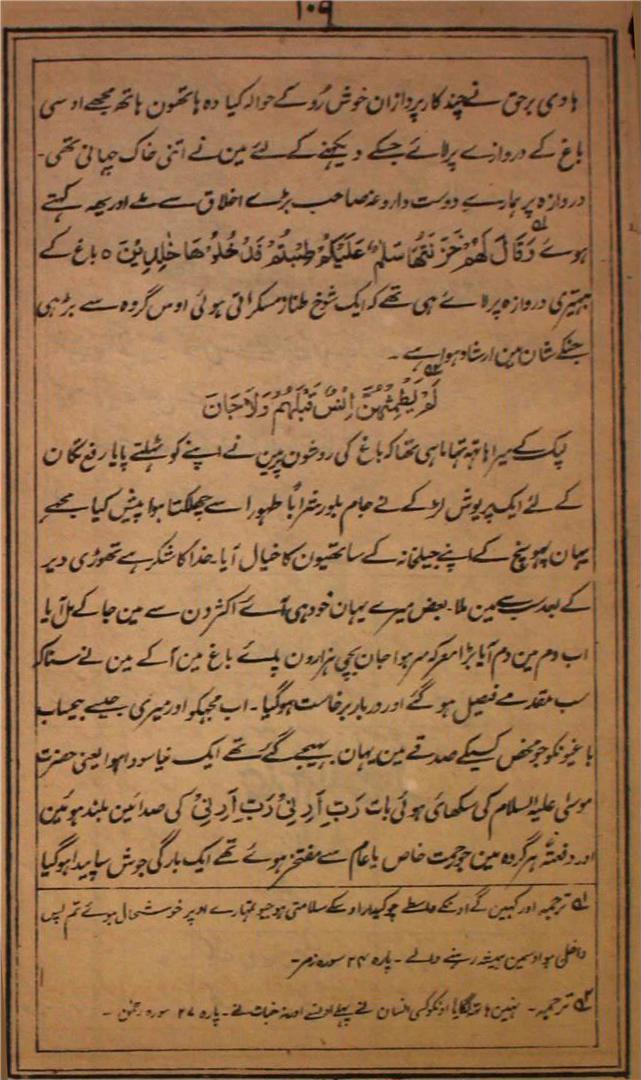 ۱۰۹
ہادی برحق نے چند کارپردازان خوش رُو کے حوالہ کیا وہ ہاتھون ہاتھ مجھے اوسی
باغ کے دروازے پر لائے جسکے دیکھنے کے لئے مین نے اتنی خاک چھانی تھی۔
دروازہ پر ہمارے دوست داروغہ صاحب بڑے اخلاق سے ملے اور یہہ کہتے
ہوے وَقَالَ لَهُمْ خَزَنَتُهَا سَلٰمٌ عَلَيْكُمْ طِبْتُمْ فَادْخُلُوْهَا خٰلِدِيْنَ ۵ باغ کے
بہیتری دروازہ پر لاے ہی تھے کہ ایک شوخ طناز مسکراتی ہوئی اوس گروہ سے بڑہی
جنکے شان مین ارشاد ہوا ہے۔
لَمْ يَطْمِثْهُنَّ اِنْسٌ قَبْلَهُمْ وَلَا جَانٌ
لپک کے میرا ہاتہہ تہاما ہی تھا کہ باغ کی روشون پر مین نے اپنے کو ٹہلتے پایا رفع تکان
کے لئے ایک پریوش لڑکے نے جام بلور شراباً طہورا سے چھلکتا ہوا پیش کیا مجھے
یہان پہونچ کے اپنے جیلخانہ کے ساتھیون کا خیال آیا۔ خدا کا شکر ہے تھوڑی دیر
کے بعد سب سے مین ملا۔ بعض میرے یہان خود ہی آئے اکثرون سے مین جا کے مل آیا
اب دم مین دم آیا بڑا معرکہ سر ہوا جان بچی ہزارون پائے باغ مین آکے مین نے سنا کہ
سب مقدمے فیصل ہو گئے اور دربار برخاست ہو گیا۔ اب مجہکو اور میری جیسے بیحساب
باغیونکو جو محض کسیکے صدقے مین یہان بہیجے گئے تھے ایک نیا سودا ہوا یعنی حضرت
موسیٰ علیہ السلام کی سکھائی ہوئی بات رَبِّ اَرِنِیْ رَبِّ اَرِنِیْ کی صدائین بلند ہوئین
اور دفعتہً ہر گروہ مین جو رحمت خاص یا عام سے مفتخر ہوے تھے ایک بارگی جوش سا پیدا ہو گیا
۱ ترجمہ اور کہین گے اونکے واسطے چوکیدار اوسکے سلامتی ہوجیو تمہارے اوپر خوشحال ہوئے تم پس
داخل ہو اوسمین ہمیشہ رہنے والے۔ پارہ ۲۴ سورہ زمر۔
۲ ترجمہ۔ نہین ہاتھ لگایا اونکو کسی انسان نے پہلے اونسے اور نہ جنات نے۔ پارہ ۲۷ سورہ رحمٰن۔